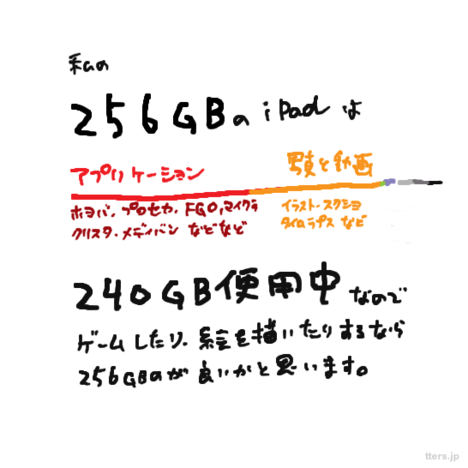 私の
256GBのiPadは
アプリケーション
写真と動画
ホヨバ、プロセカ、FGO,マイクラ
クリスタ、メディバン などなど
イラスト・スクショ
タイムラプス など
240GB使用中なので
ゲームしたり、絵を描いたりするなら
256GBのが良いかと思います。
tters.jp